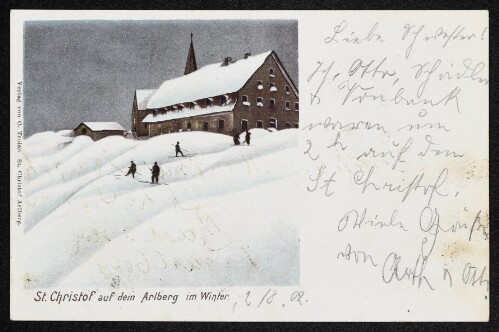 Liebe Schwester!
Ich, Otto,
waren um
2 h auf dem
St Christof.
Viele Grüße
von
Otto
Verlag von O. Troier, St. Christof Arlberg.
St. Christof auf dem Arlberg im Winter, 2/8. 02.